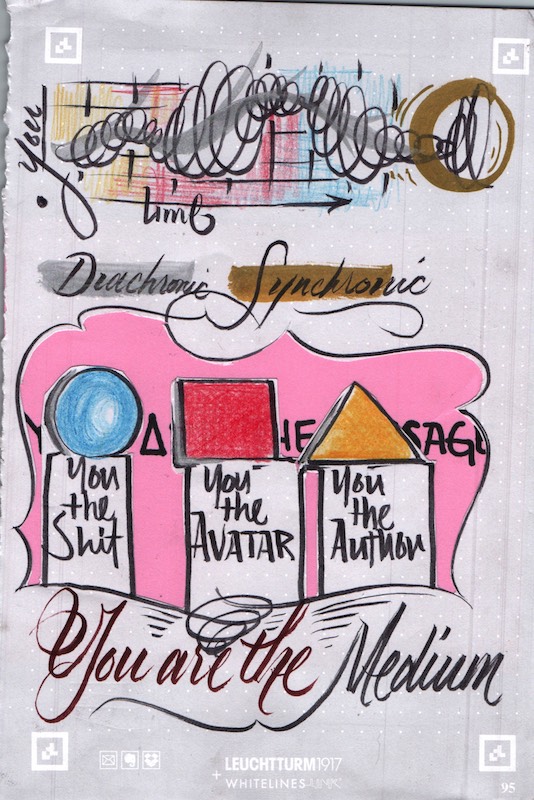 you
time
Diachronic Synchronic
A HE SAGE
You
the
Shit
You
the
AVATAR
You
the
Author
You are the Medium
LEUCHTTURM1917
+ WHITELINES LINK
95